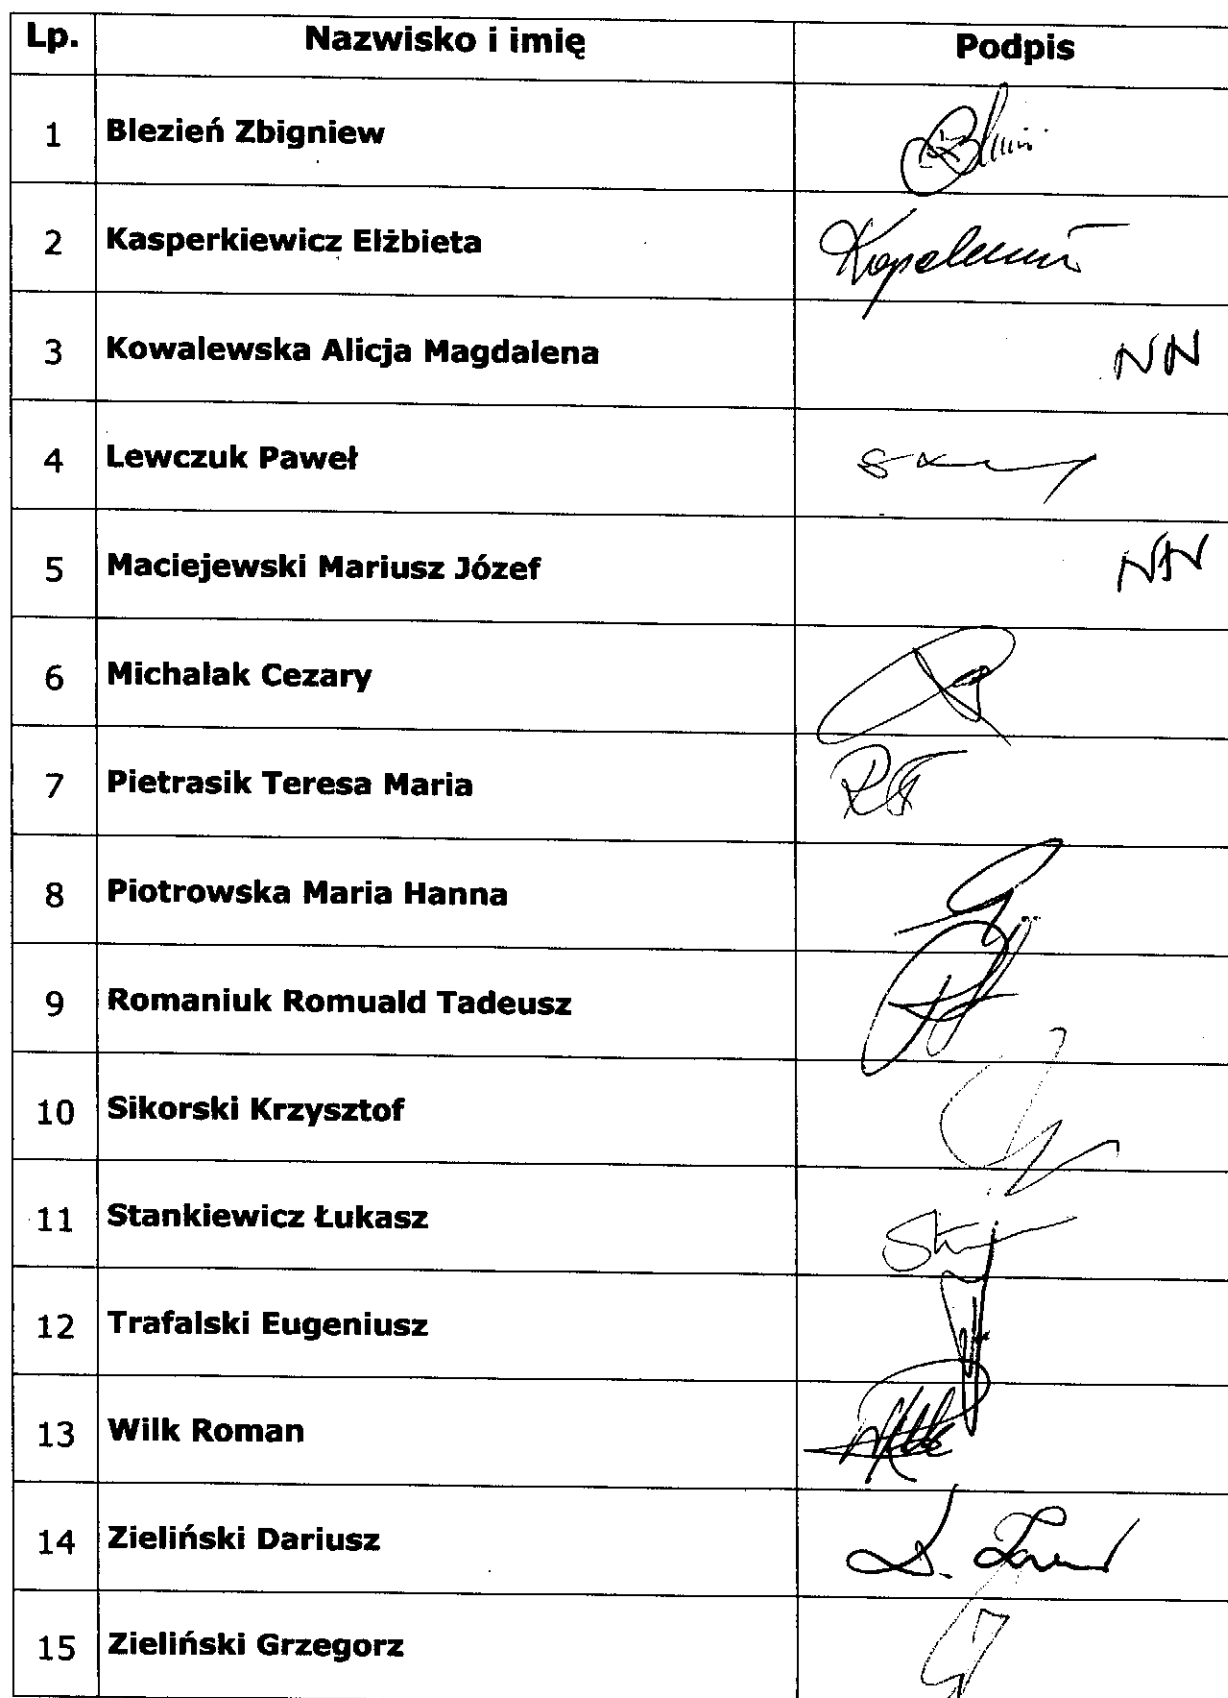 Lp. Nazwisko i imię Podpis
1 Blezień Zbigniew
2 Kasperkiewicz Elżbieta
3 Kowalewska Alicja Magdalena NN
4 Lewczuk Paweł
5 Maciejewski Mariusz Józef NN
6 Michalak Cezary
7 Pietrasik Teresa Maria
8 Piotrowska Maria Hanna
9 Romaniuk Romuald Tadeusz
10 Sikorski Krzysztof
11 Stankiewicz Łukasz
12 Trafalski Eugeniusz
13 Wilk Roman
14 Zieliński Dariusz
15 Zieliński Grzegorz